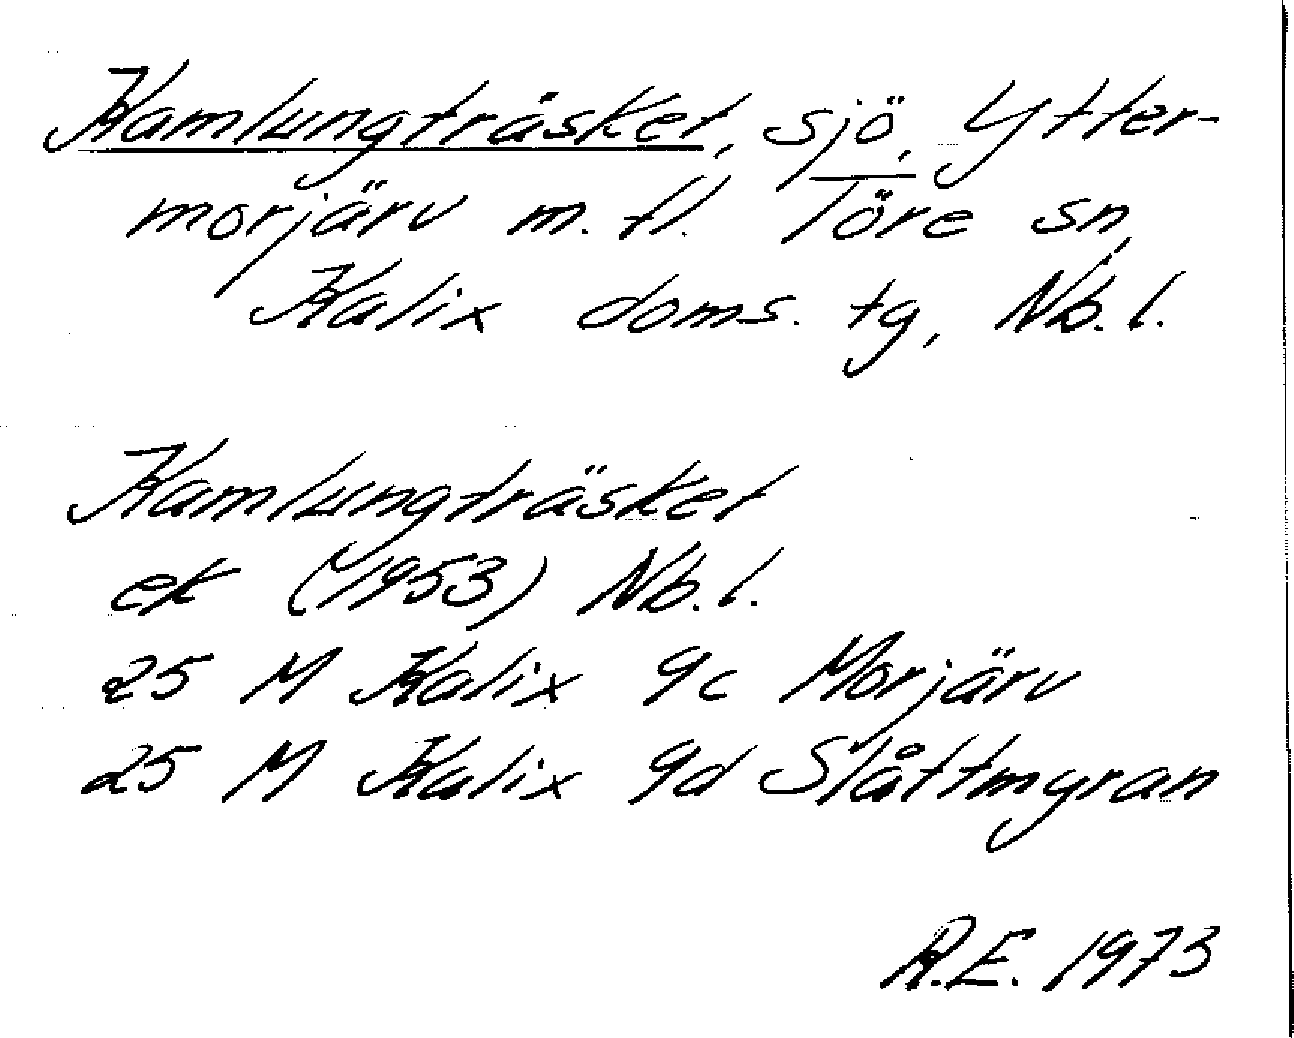 Kamlungträsket, sjö, Ytter-
morjärv m.fl. Töre sn,
Kalix doms. tg, Nb.l.
Kamlungträsket
ek (1953) Nb.l.
25 M Kalix 9c Morjärv
25 M Kalix 9d Slåttmyran
R.E. 1973